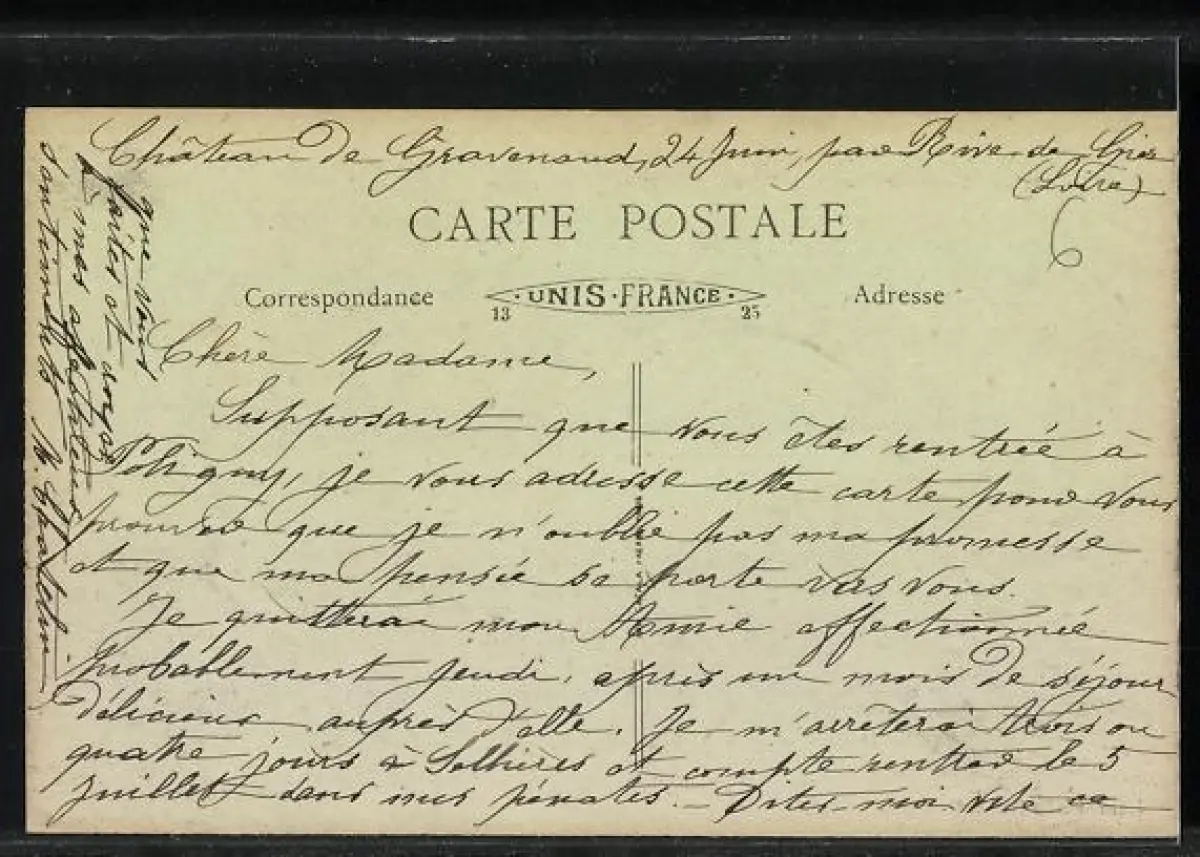 Château de Gravenand, 24 Juin, par Rive-de Gier
(Loire)
6
CARTE POSTALE
Correspondance
·UNIS·FRANCE·
13 25
Adresse
Chère Madame,
Supposant que vous êtes rentrée à
Poligny, je vous adresse cette carte pour vous
prouver que je n'oublie pas ma promesse
et que ma pensée se porte vers vous.
Je quitterai mon Amie affectionnée
probablement jeudi, après un mois de séjour
délicieux auprès d'elle. Je m'arrêterai trois ou
quatre jours à Sellières et compte rentrer le 5
Juillet dans mes pénates. - Dites-moi vite ce
que vous
faites et croyez
à mes affectueux
sentiments M.